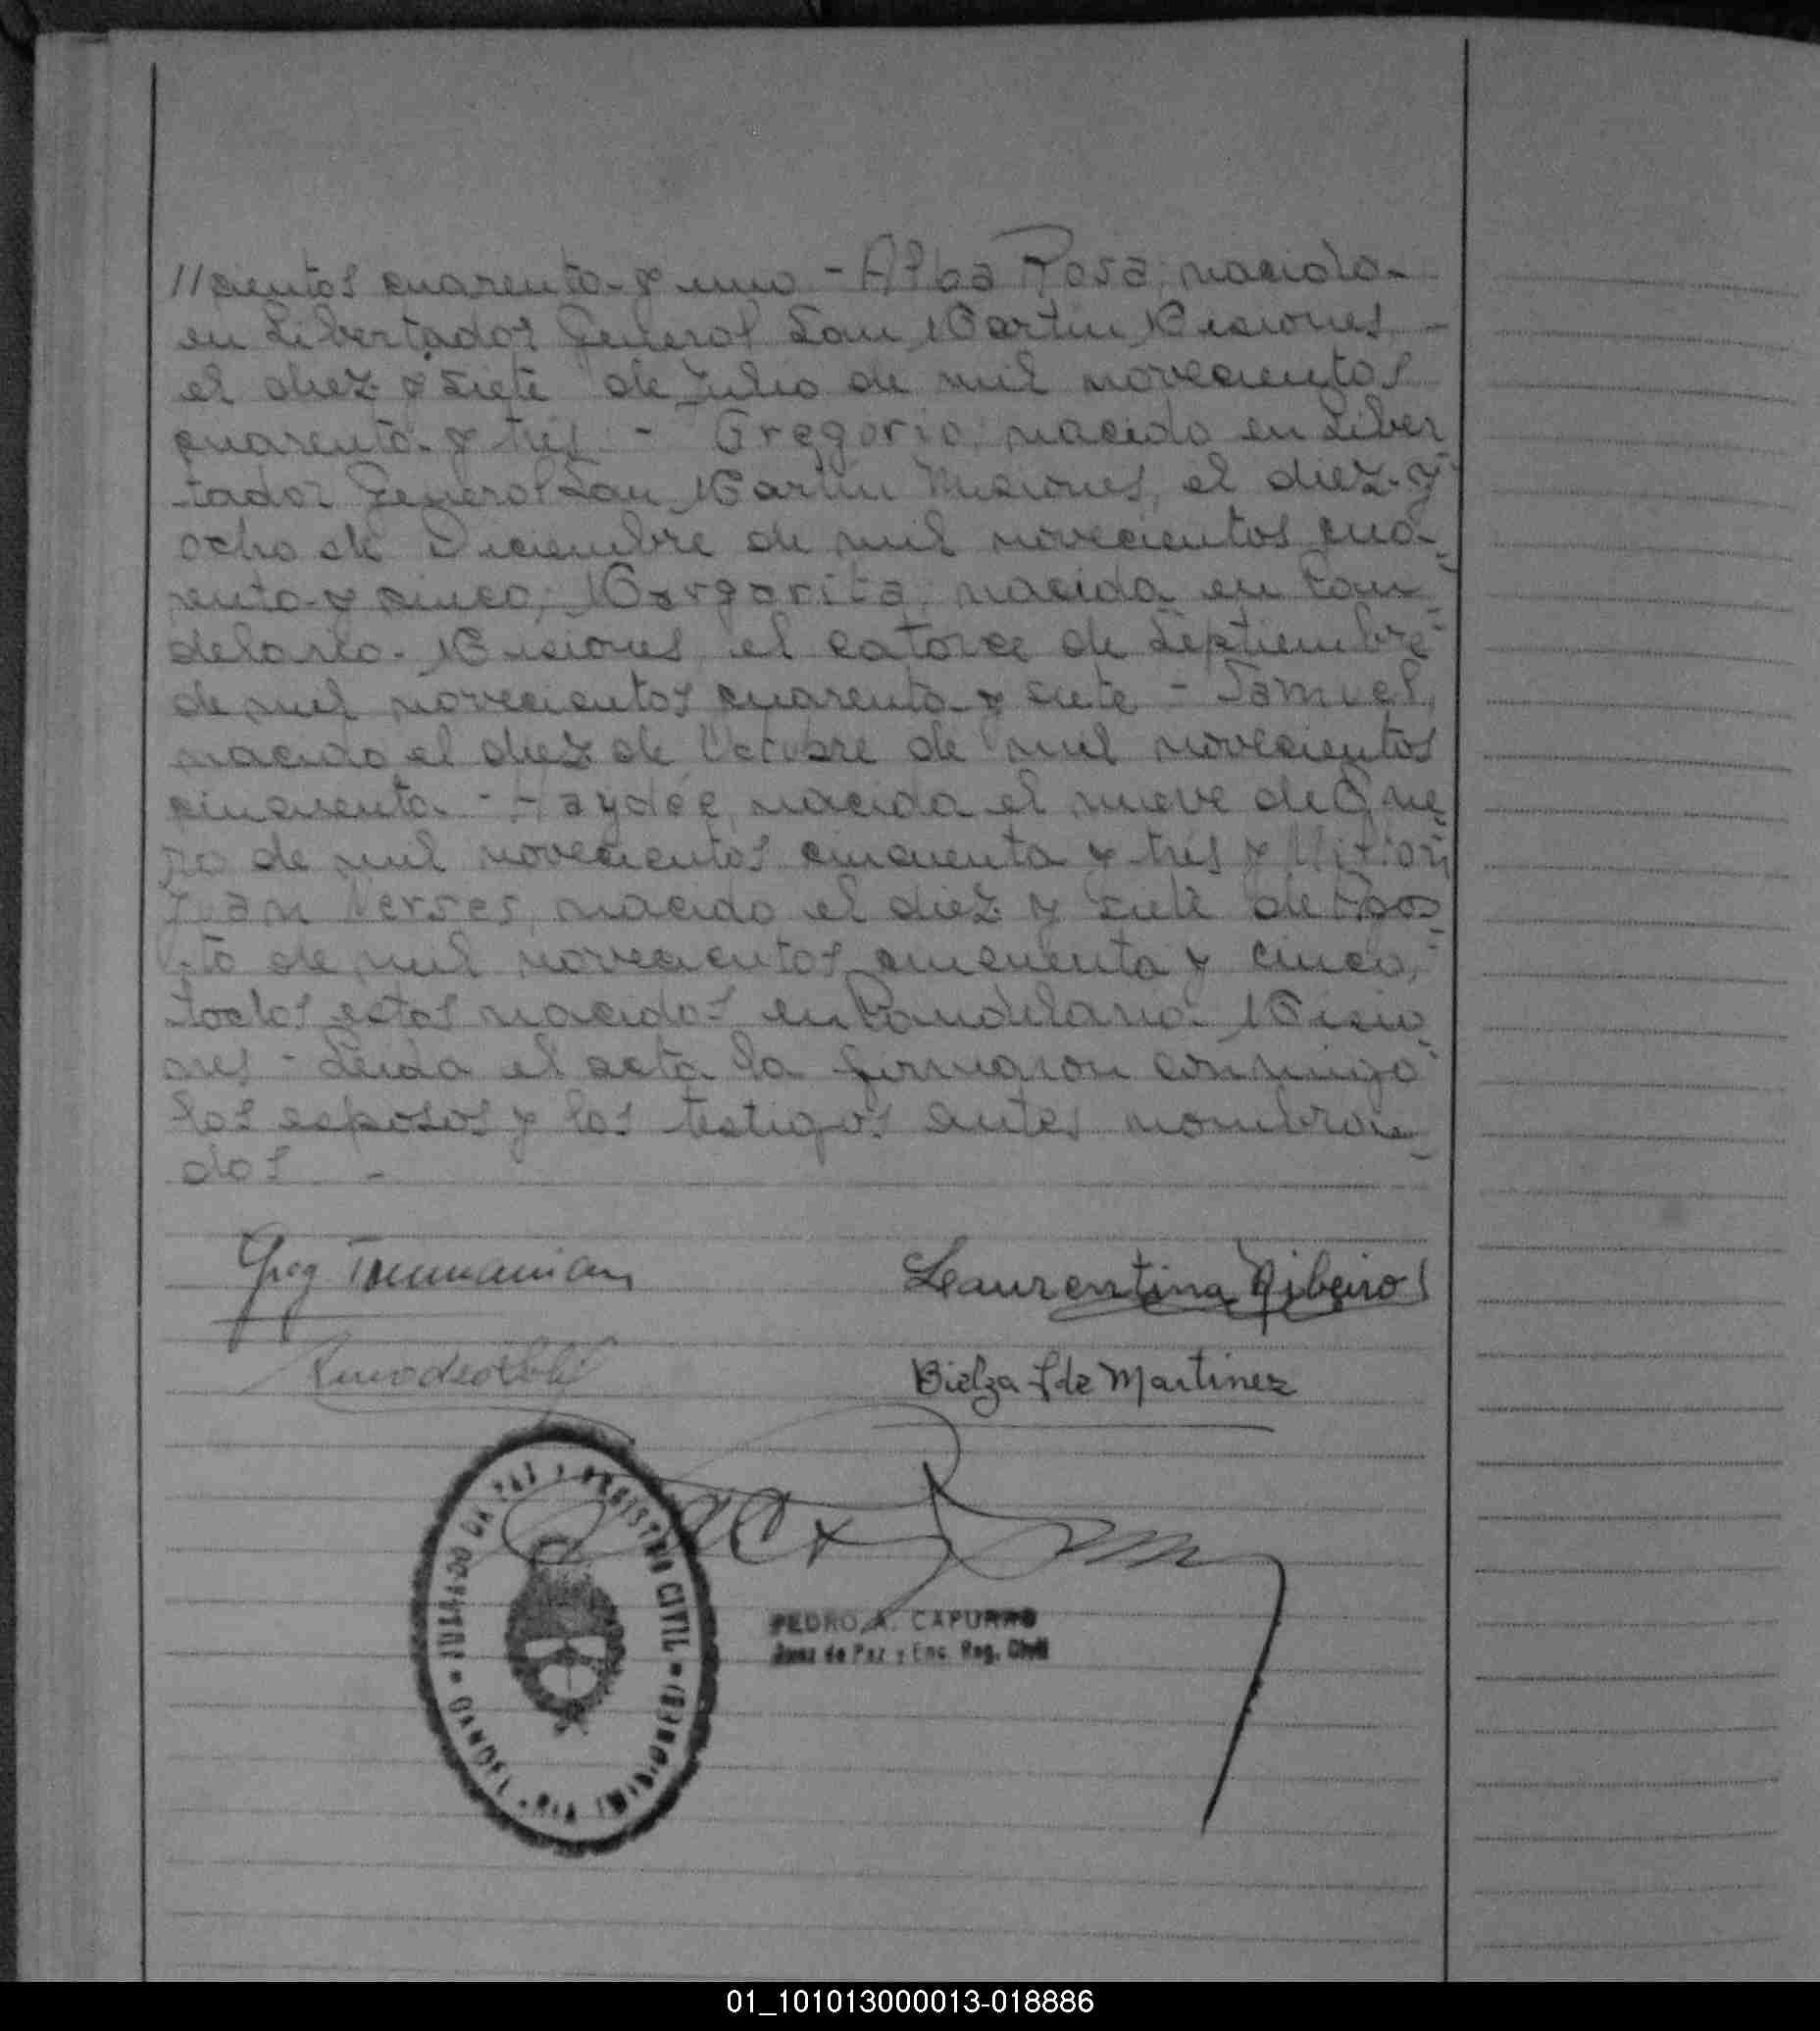 //cientos cuarenta y uno - Alba Rosa, nacida
en Libertador General San Martin Misiones, -
el diez y siete de Julio de mil novecientos
cuarenta y tres. - Gregorio, nacido en Liber
tador General San Martin Misiones, el diez y
ocho de Diciembre de mil novecientos cua-
renta y cinco; Margarita, nacida en Can-
delaria - Misiones, el catorce de Septiembre
de mil novecientos cuarenta y siete - Samuel,
nacido el diez de Octubre de mil novecientos
cincuenta - Haydée, nacida el nueve de Ene-
ro de mil novecientos cincuenta y tres y
Juan Nerses, nacido el diez y siete de Agos-
to de mil novecientos cincuenta y cinco,
todos estos nacidos en Candelaria - Misio-
nes - Leida el acta la firmaron conmigo
los esposos y los testigos antes nombra
dos -
Greg Toumanian
Laurentina Ribeiro
Bielza f de Martinez
JUZGADO DE PAZ Y REGISTRO CIVIL
CANDELARIA (MISIONES)
PEDRO A. CAPURRO
Juez de Paz y Enc. Reg. Civil
01_101013000013-018886